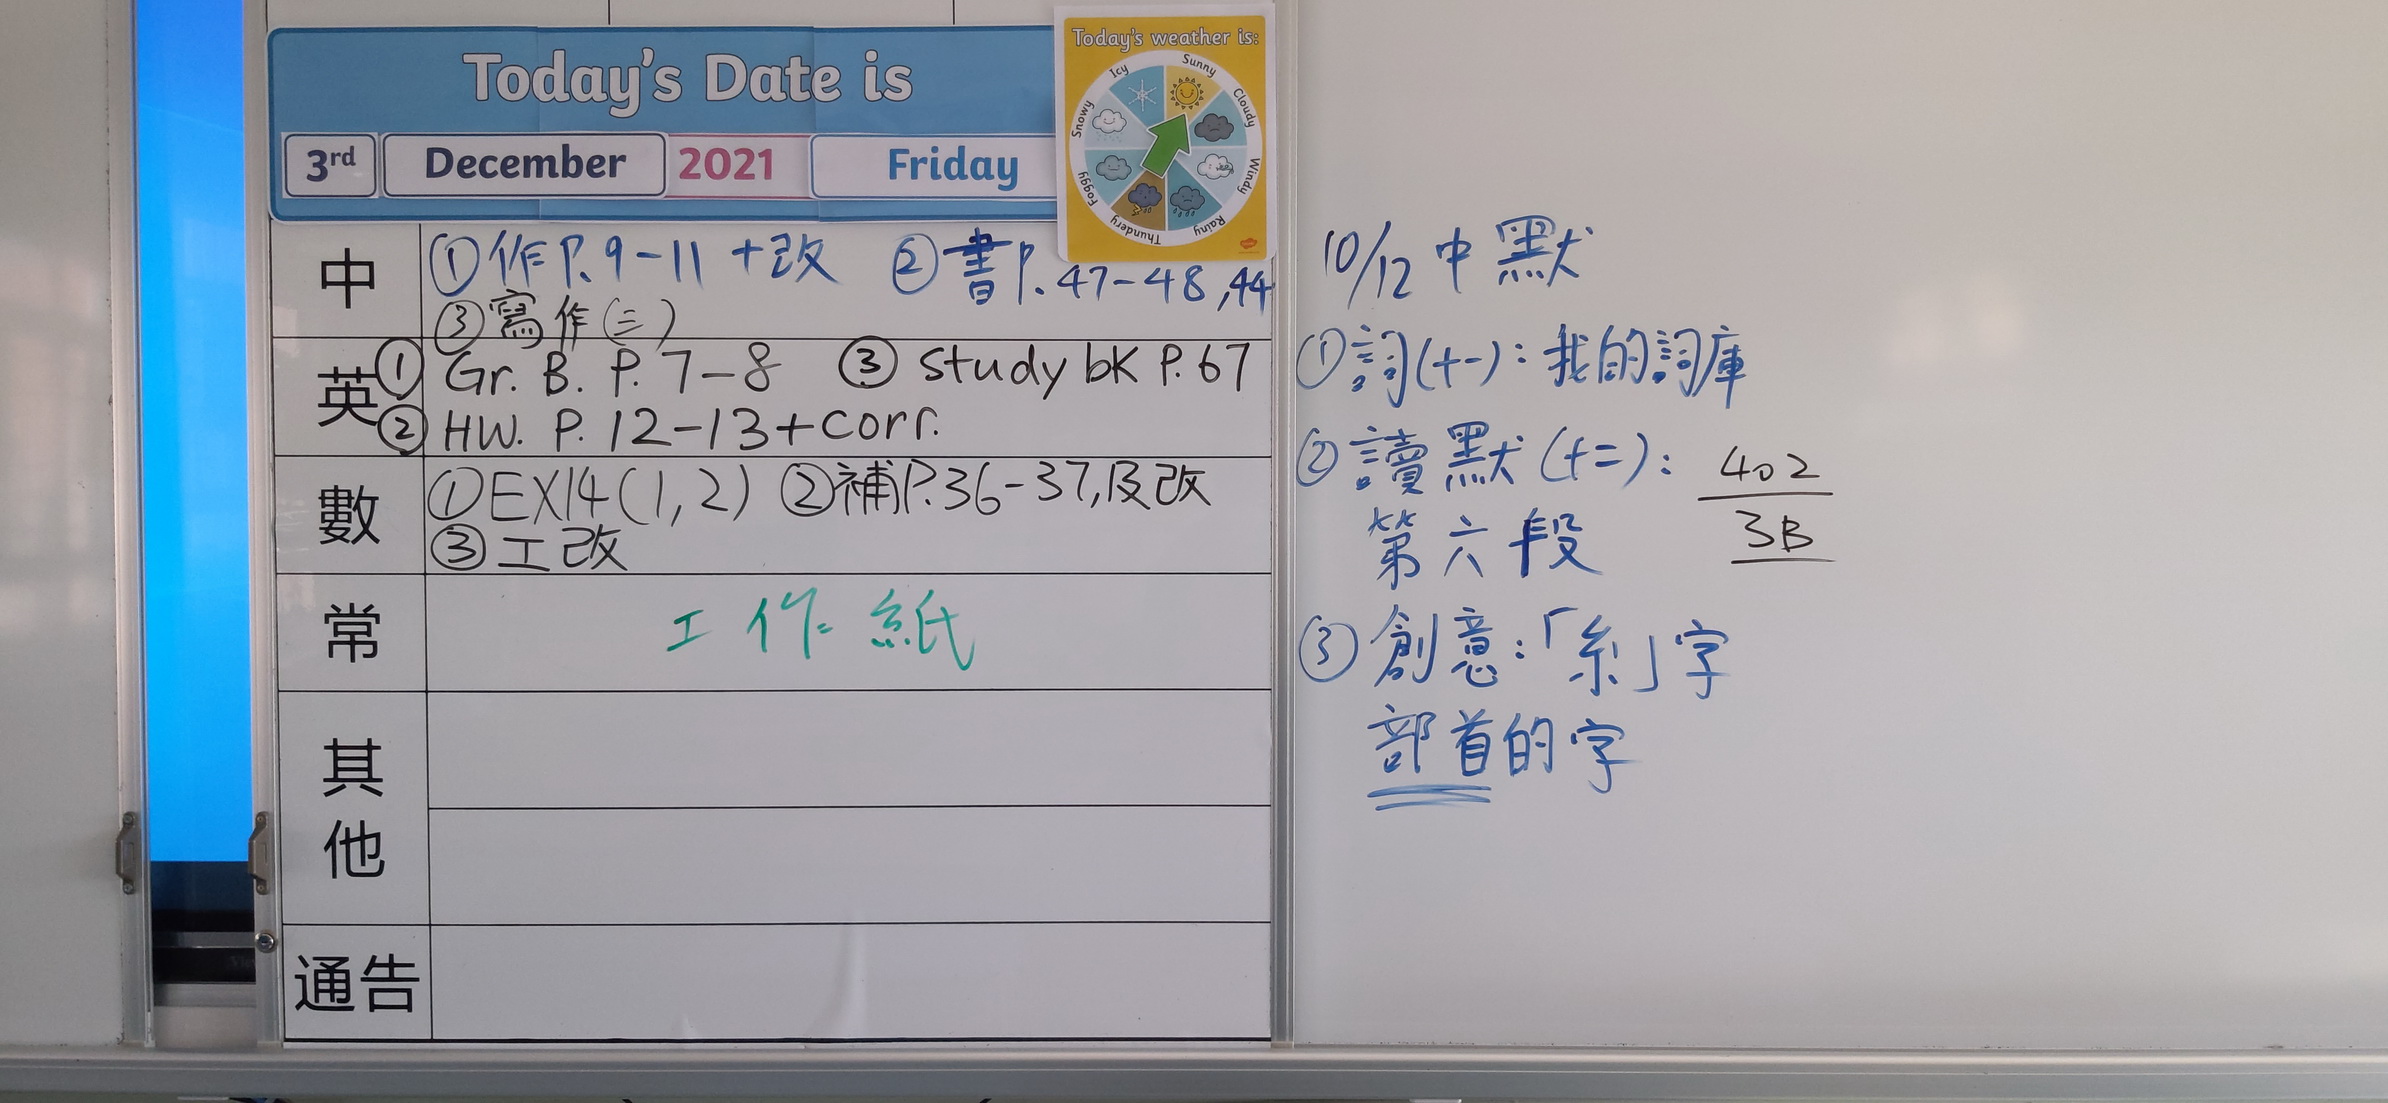 Today's Date is
3rd December 2021 Friday
Today's weather is:
Sunny
Cloudy
Windy
Rainy
Thundery
Foggy
Snowy
Icy
中
①作P.9-11+改 ②書P.47-48,44
③寫作(三)
英
① Gr. B. P. 7-8 ③ study bk P. 67
② HW. P. 12-13+corr.
數
①EX14(1,2) ②補P.36-37,及改
③工改
常
工作紙
其他
通告
10/12 中默
①詞(十一):我的詞庫
②讀默(十二):
第六段
③創意:「糸」字
部首的字
402
3B